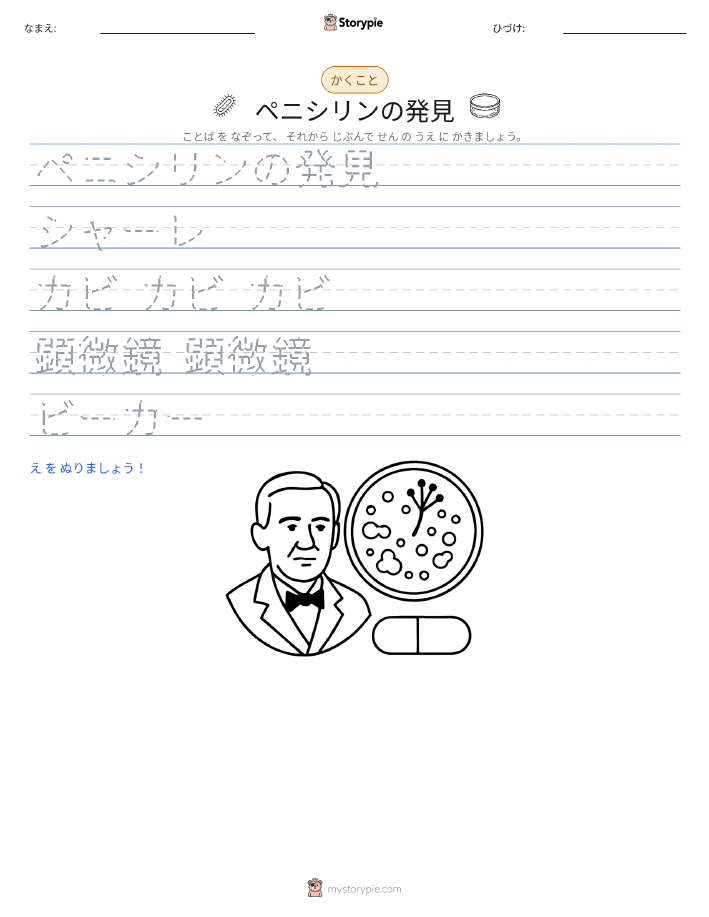 なまえ:
Storypie
ひづけ:
かくこと
ペニシリンの発見
ことば を なぞって、 それから じぶんで せん の うえ に かきましょう。
ペニシリンの発見
シャーレ
カビ カビ カビ
顕微鏡 顕微鏡
ビーカー
え を ぬりましょう！
mystorypie.com